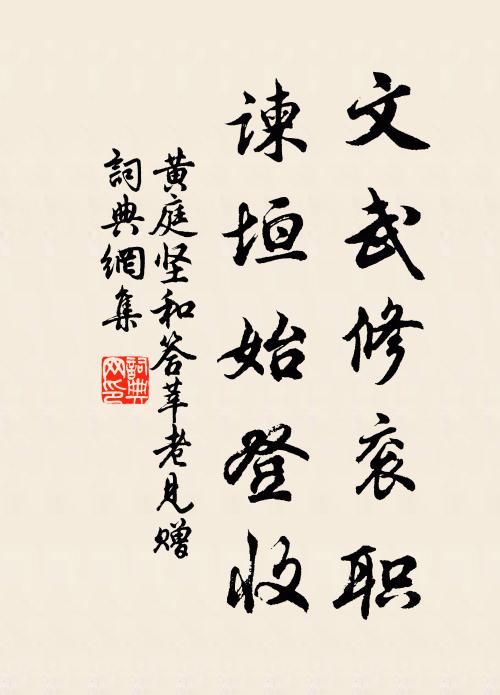 文武修衮职
谏垣始登收
黄庭坚和答莘老见赠
詞典網集
詞典网印